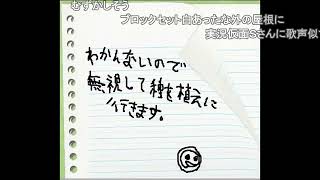 むずかしそう
ブロックセット白あったな外の屋根に
実況仮面Sさんに歌声似
わかんないので
無視して種を植えに
行きます。